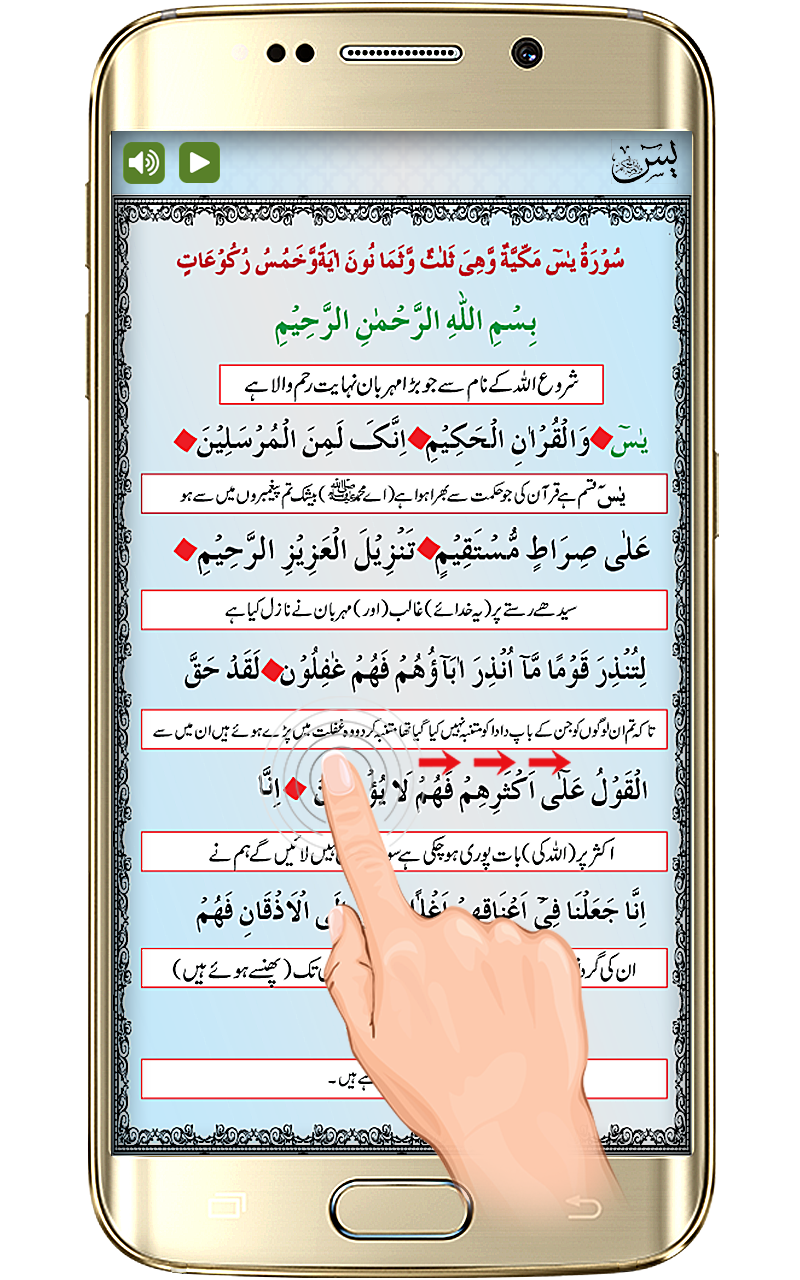 يٰسٓ
سُوْرَةُ يٰسٓ مَكِّيَّةٌ وَّهِىَ ثَلٰثٌ وَّثَمَا نُونَ اٰيَةًوَّخَمْسُ رُكُوْعَاتٍ
بِسْمِ اللّٰهِ الرَّحْمٰنِ الرَّحِيْمِ
شروع اللہ کے نام سے جو بڑا مہربان نہایت رحم والا ہے
يٰسٓ وَالْقُرْاٰنِ الْحَكِيْمِ اِنَّکَ لَمِنَ الْمُرْسَلِيْنَ
یٰسٓ قسم ہے قرآن کی جو حکمت سے بھرا ہوا ہے (اے محمد ﷺ) بیشک تم پیغمبروں میں سے ہو
عَلٰى صِرَاطٍ مُّسْتَقِيْمٍ تَنْزِيْلَ الْعَزِيْزِ الرَّحِيْمِ
سیدھے رستے پر (یہ خدائے) غالب (اور) مہربان نے نازل کیا ہے
لِتُنْذِرَ قَوْمًا مَّاۤ اُنْذِرَ اٰبَآؤُهُمْ فَهُمْ غٰفِلُوْن لَقَدْ حَقَّ
تاکہ تم ان لوگوں کو جن کے باپ دادا کو متنبہ نہیں کیا گیا تھا متنبہ کر دو وہ غفلت میں پڑے ہوئے ہیں ان میں سے
الْقَوْلُ عَلٰٓى اَكْثَرِهِمْ فَهُمْ لَا اِنَّا
اکثر پر (اللہ کی) بات پوری ہو چکی ہے لائیں گے ہم نے
اِنَّا جَعَلْنَا فِىْۤ اَعْنَاقِهِمْ الْاَذْقَانِ فَهُمْ
ان کی تک (پھنسے ہوئے ہیں)
ہیں ۔